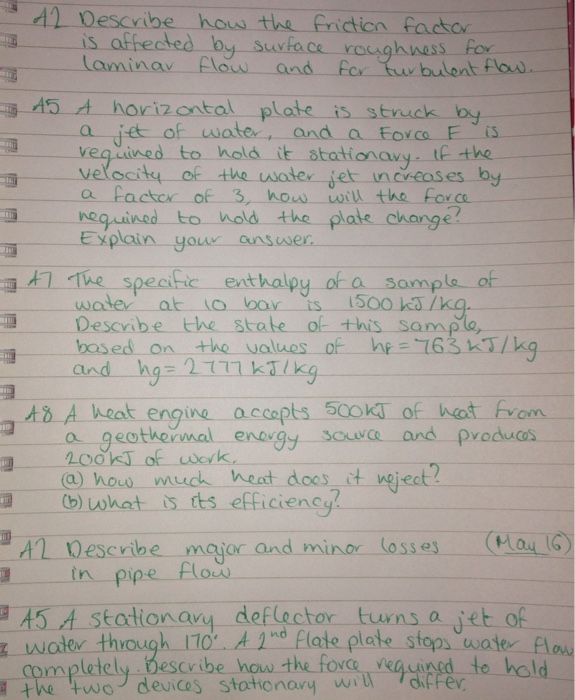 A2 Describe how the friction factor
is affected by surface roughness for
laminar flow and for turbulent flow.
A5 A horizontal plate is struck by
a jet of water, and a Force F is
required to hold it stationary. If the
velocity of the water jet increases by
a factor of 3, how will the force
required to hold the plate change?
Explain your answer.
A7 The specific enthalpy of a sample of
water at 10 bar is 1500 kJ/kg.
Describe the state of this sample,
based on the values of hf = 763 kJ/kg
and hg = 2777 kJ/kg
A8 A heat engine accepts 500kJ of heat from
a geothermal energy source and produces
200kJ of work.
(a) how much heat does it reject?
(b) what is its efficiency?
A2 Describe major and minor losses (May 16)
in pipe flow
A5 A stationary deflector turns a jet of
water through 170°. A 2nd flate plate stops water flow
completely. Describe how the force required to hold
the two devices stationary will differ.